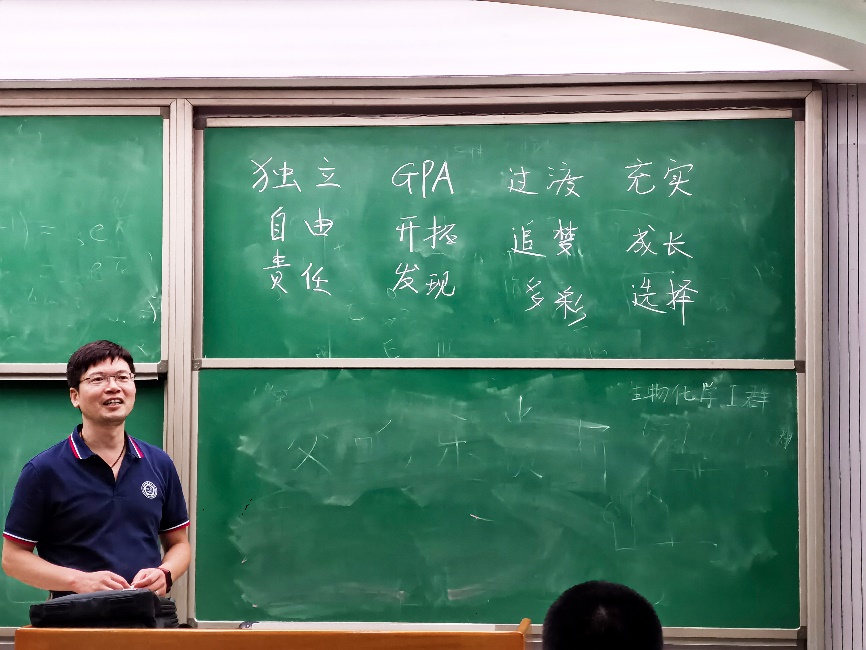 独立 GPA 过渡 充实
自由 开拓 追梦 成长
责任 发现 多彩 选择
生物化学 群